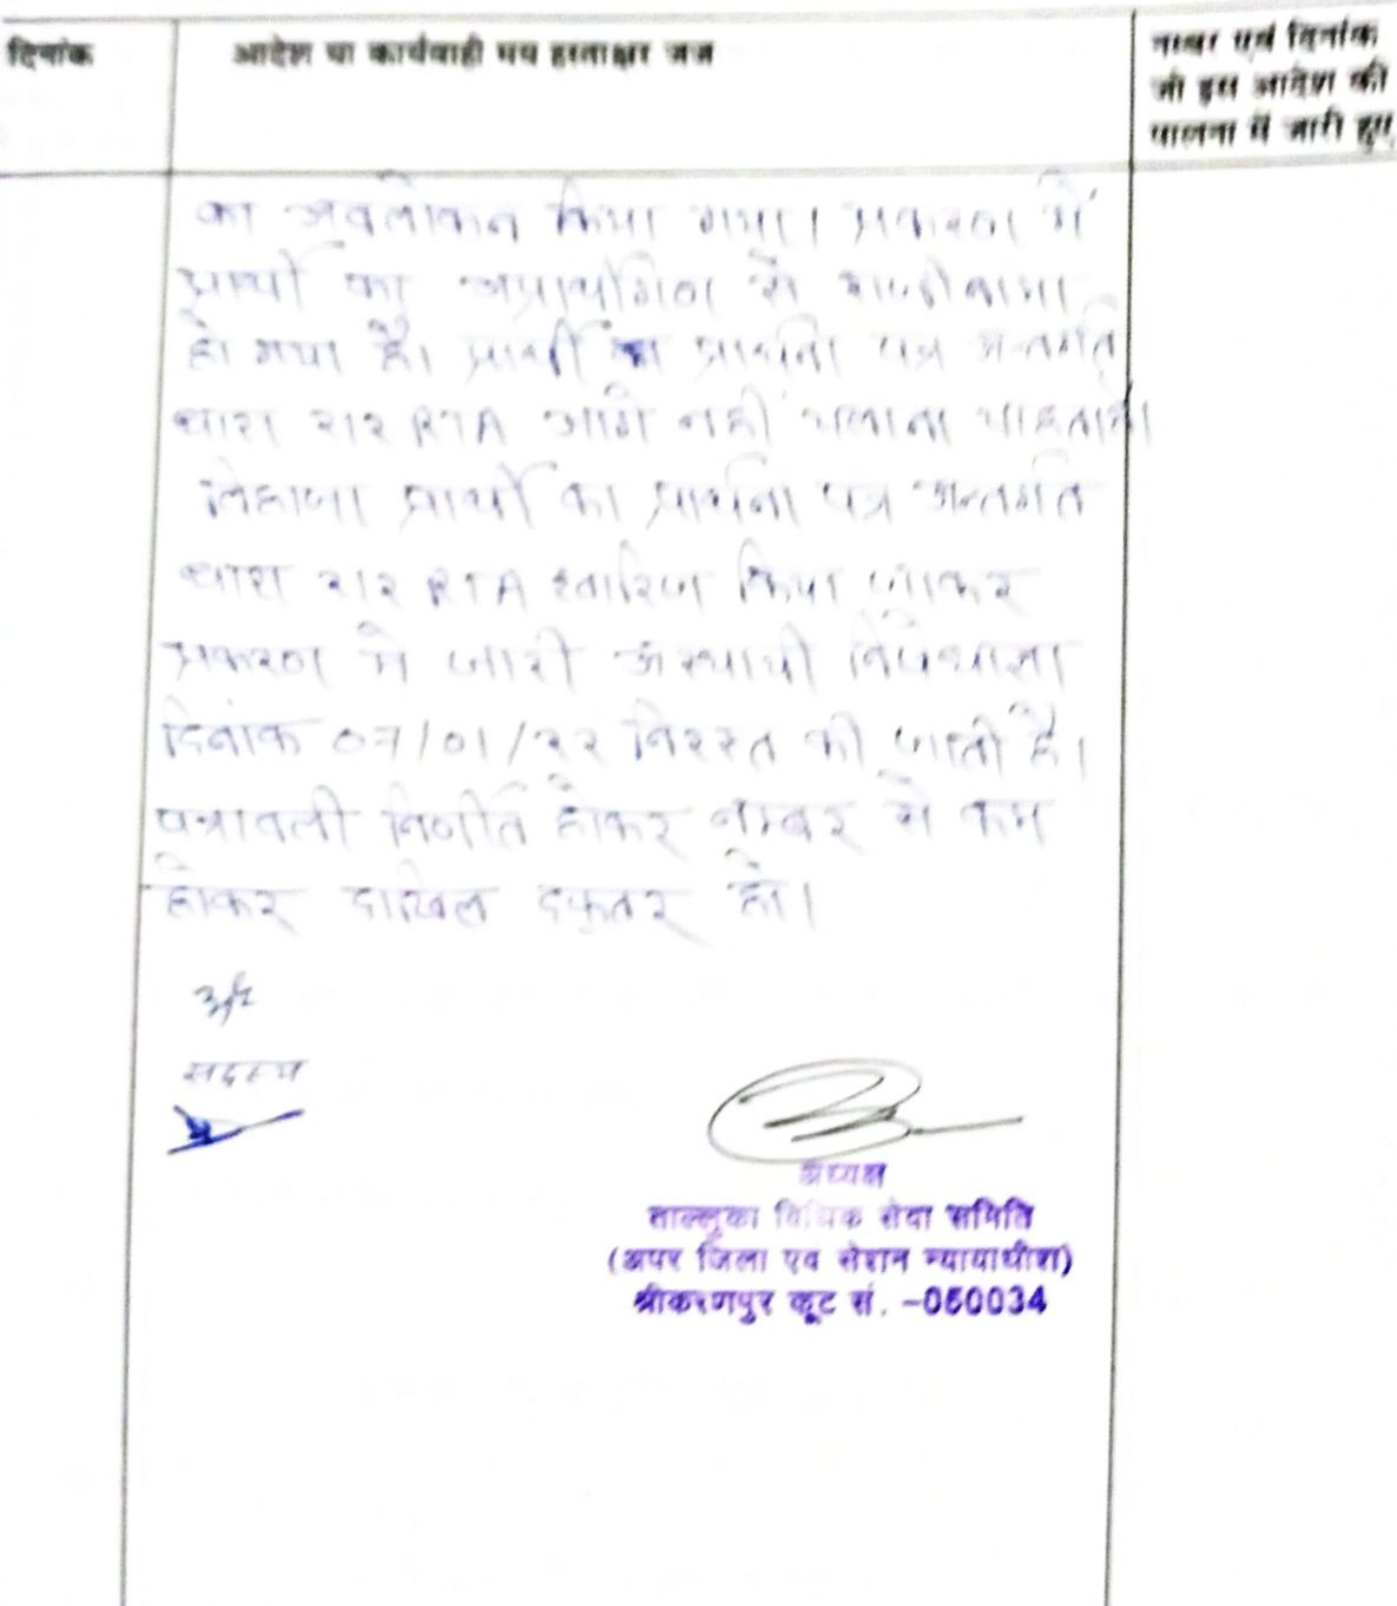 दिनांक
आदेश या कार्यवाही मय हस्ताक्षर जज
नम्बर एवं दिनांक
जो इस आदेश की
पालना में जारी हुए
का अवलोकन किया गया। प्रकरण में
प्रार्थी का अप्रार्थीगण से राजीनामा
हो गया है। प्रार्थी प्रार्थना पत्र अन्तर्गत
धारा 212 RTA आगे नहीं चलाना चाहता है।
लिहाजा प्रार्थी का प्रार्थना पत्र अन्तर्गत
धारा 212 RTA खारिज किया जाकर
प्रकरण में जारी अस्थायी निषेधाज्ञा
दिनांक 07/01/22 निरस्त की जाती है।
पत्रावली निर्णीत होकर नम्बर से कम
होकर दाखिल दफ्तर हो।
सदस्य
अध्यक्ष
ताल्लुका विधिक सेवा समिति
(अपर जिला एवं सेशन न्यायाधीश)
श्रीकरणपुर कूट सं. -050034